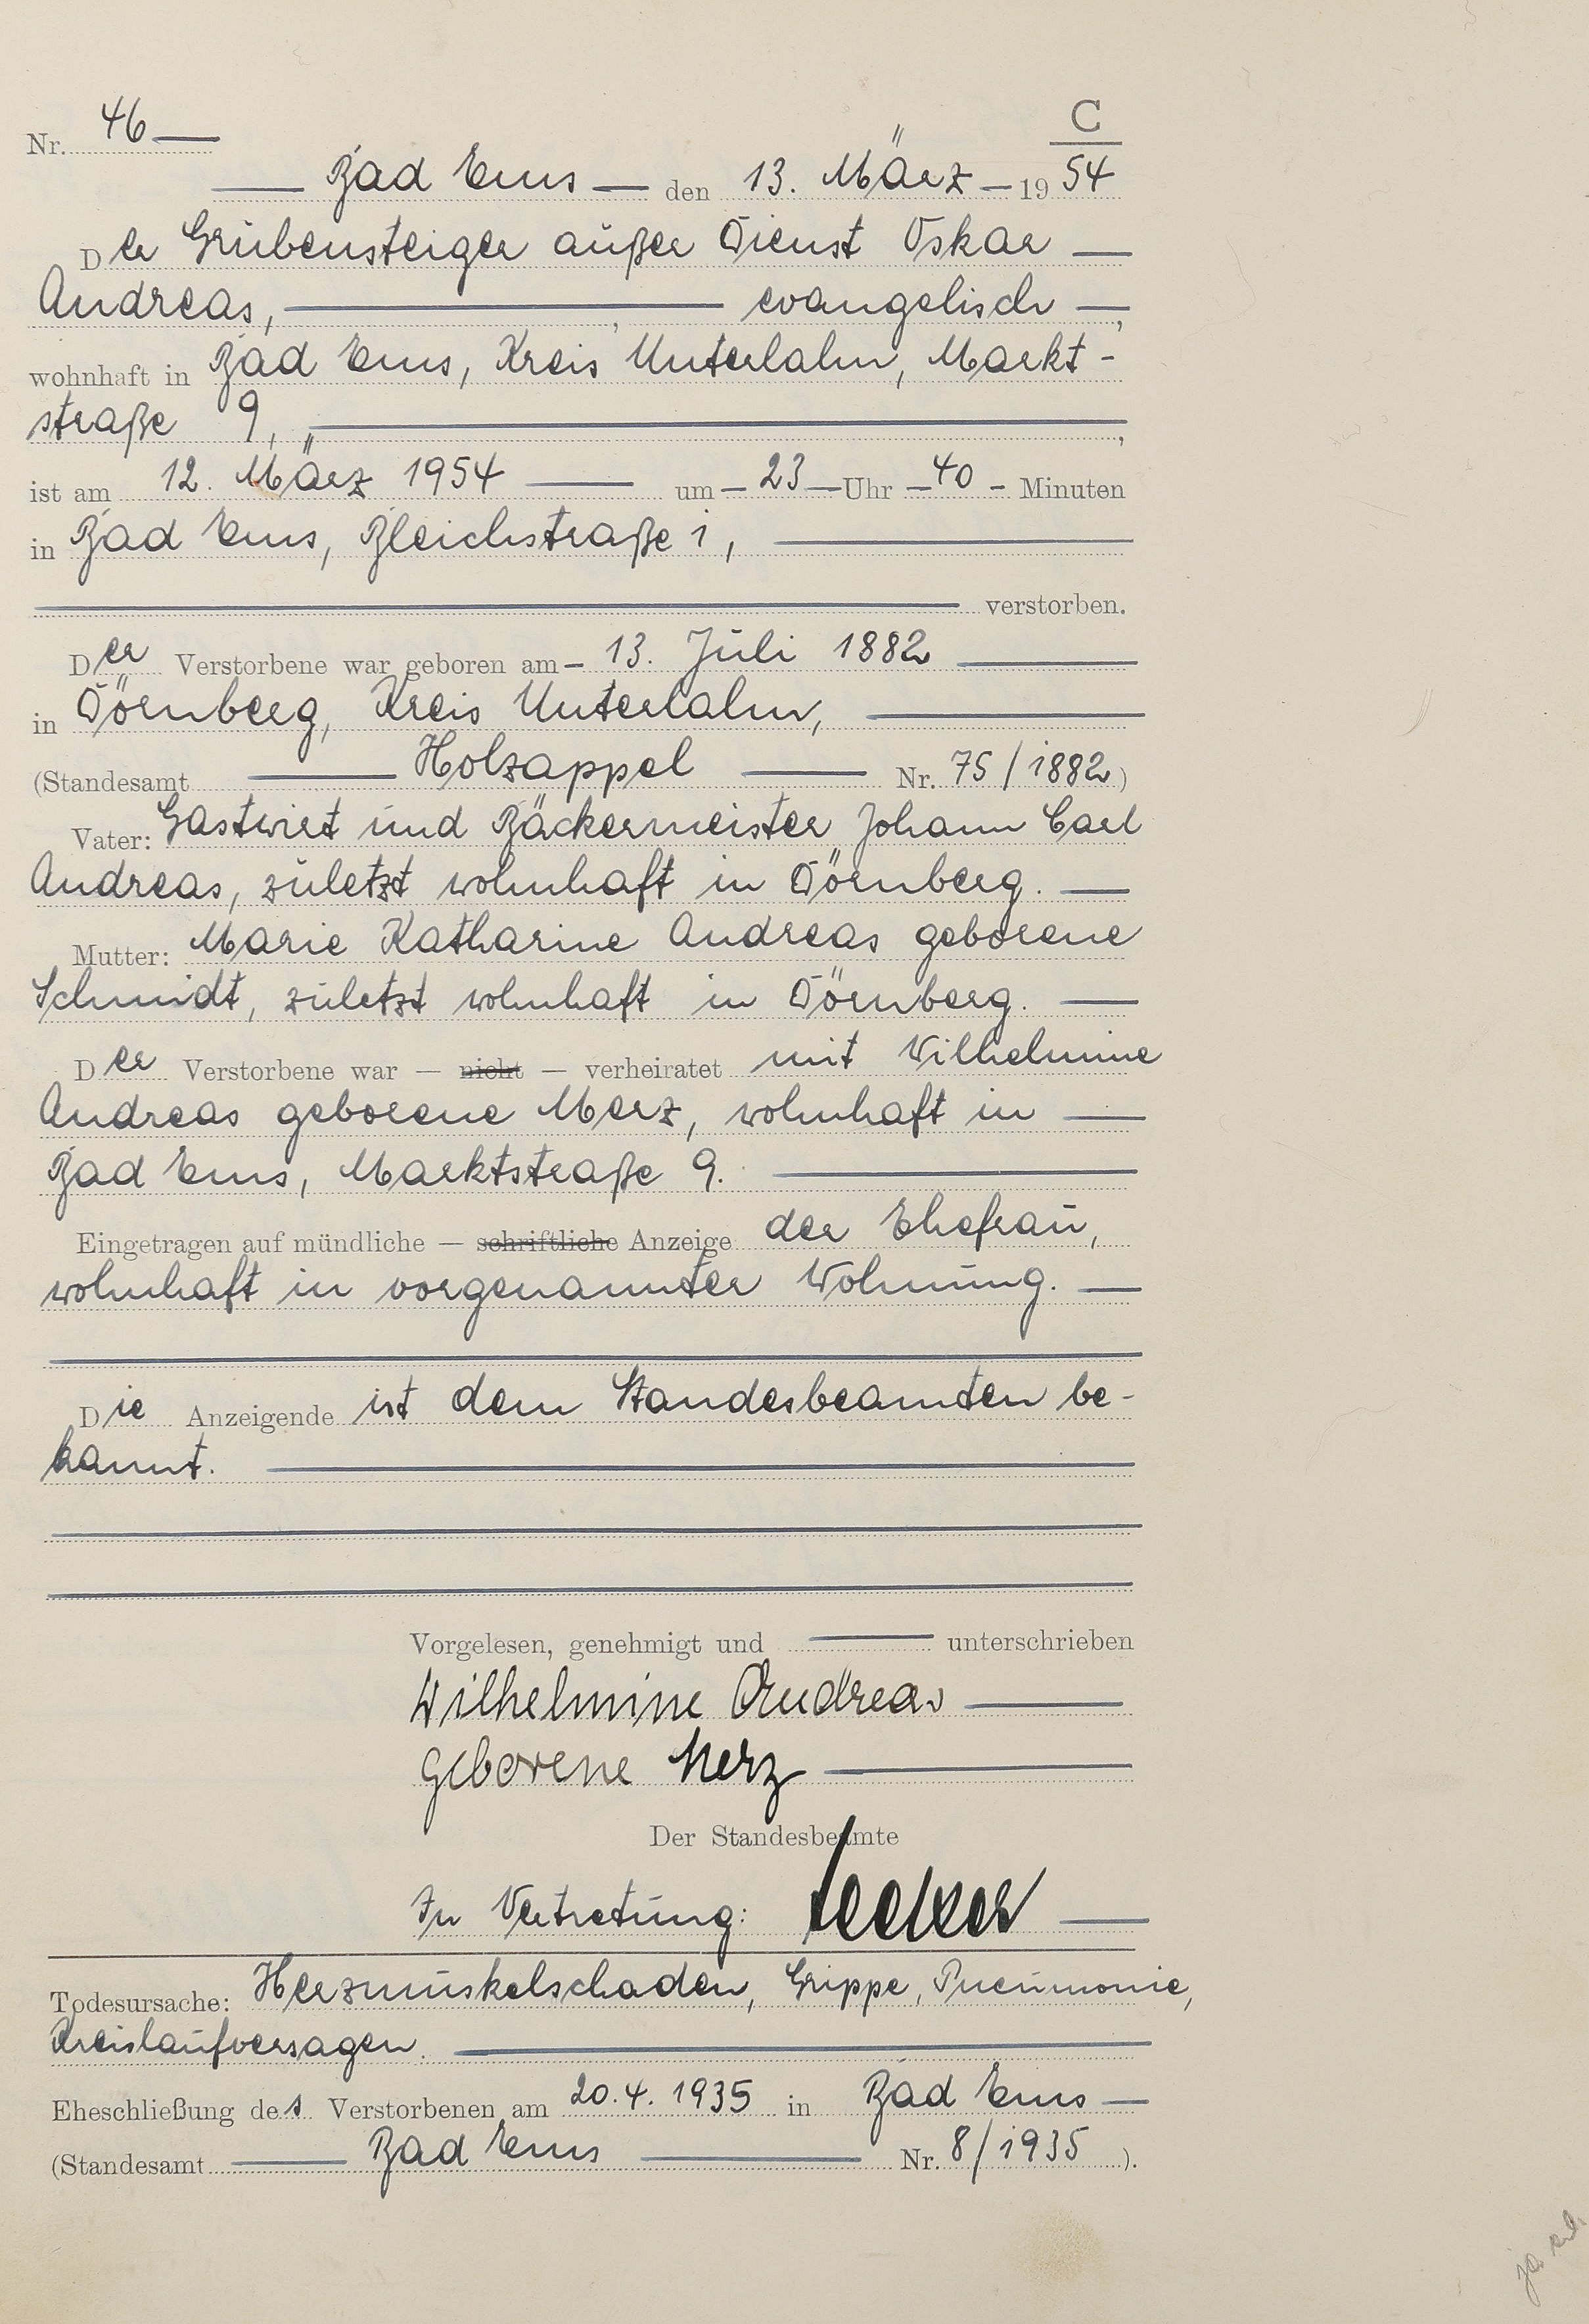 C
Nr. 46 —
— Bad Ems — den 13. März — 1954
Der Grubensteiger außer Dienst Oskar —
Andreas, — , — evangelisch —,
wohnhaft in Bad Ems, Kreis Unterlahn, Markt-
straße 9, — ,
ist am 12. März 1954 — um — 23 — Uhr — 40 — Minuten
in Bad Ems, Bleichstraße 1, —
— verstorben.
Der Verstorbene war geboren am — 13. Juli 1882 —
in Dörnberg, Kreis Unterlahn, —
(Standesamt — Holzappel — Nr. 75/1882)
Vater: Gastwirt und Bäckermeister Johann Carl
Andreas, zuletzt wohnhaft in Dörnberg. —
Mutter: Marie Katharine Andreas geborene
Schmidt, zuletzt wohnhaft in Dörnberg. —
Der Verstorbene war — nicht — verheiratet mit Wilhelmine
Andreas geborene Merz, wohnhaft in —
Bad Ems, Marktstraße 9. —
Eingetragen auf mündliche — schriftliche Anzeige der Ehefrau,
wohnhaft in vorgenannter Wohnung. —
Die Anzeigende ist dem Standesbeamten be-
kannt. —
Vorgelesen, genehmigt und — unterschrieben
Wilhelmine Andreas —
geborene Merz —
Der Standesbeamte
In Vertretung: —
Todesursache: Herzmuskelschaden, Grippe, Pneumonie,
Kreislaufversagen. —
Eheschließung des Verstorbenen am 20.4.1935 in Bad Ems —
(Standesamt — Bad Ems — Nr. 8/1935).